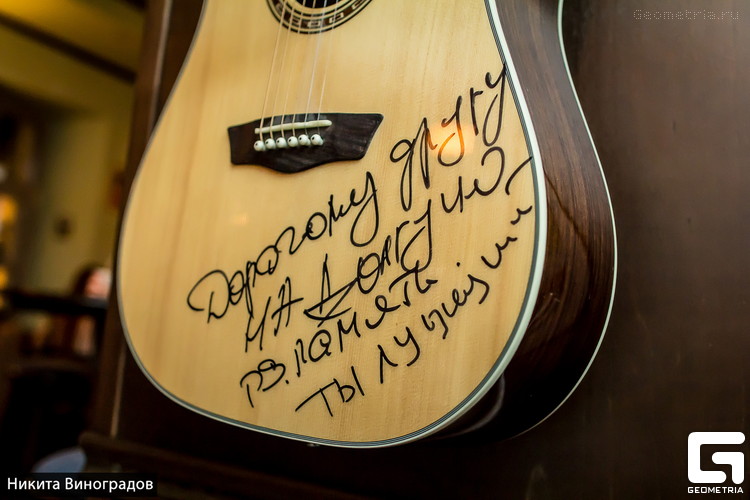 Geometria.ru
Дорогому другу
на долгую
память
ты лучший
Никита Виноградов
GEOMETRIA